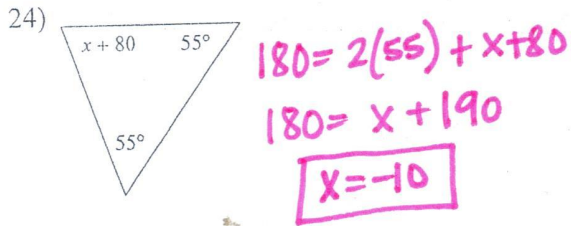 24)
x + 80 55°
55°
180 = 2(55) + x + 80
180 = x + 190
x = -10